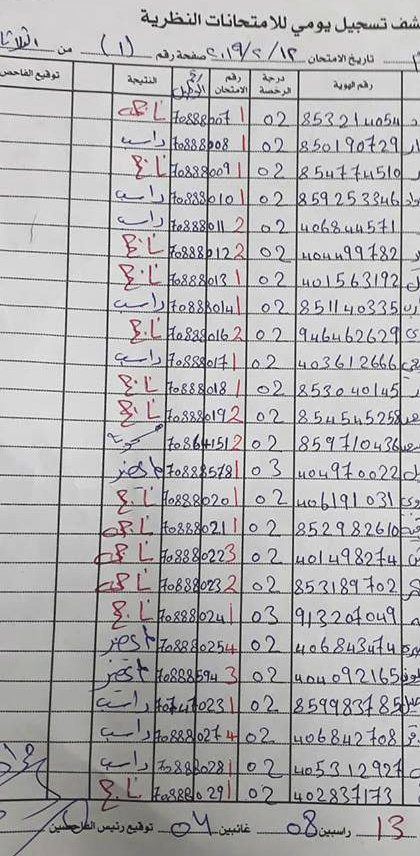 شف تسجيل يومي للامتحانات النظرية
تاريخ الامتحان ٢٠١٩/٢/١٢ صفحة رقم (١) من
رقم الهوية درجة الرخصة رقم الامتحان رقم النتيجة توقيع الفاحص
853214054 02 1 70888007 ناجحة
850190729 02 1 70888008 راسب
854774510 02 1 70888009 ناجح
859253346 02 1 70888010 راسب
406844571 02 2 70888011 راسب
404499782 02 2 70888012 ناجح
401563192 02 1 70888013 ناجح
851140335 02 1 70888014 راسب
946462629 02 2 70888016 ناجح
403612666 02 1 70888017 راسب
853040145 02 1 70888018 ناجح
854545258 02 2 70888019 ناجح
859710436 02 2 70864151
404970022 03 1 70888578
406191031 02 1 70888020 ناجح
852982610 02 1 70888021 ناجحة
401498274 02 3 70888022 ناجحة
853189702 02 2 70888023 ناجحة
913207049 03 1 70888024 ناجح
406843474 02 4 70888025
404092165 02 3 70888594
859983785 02 1 70747023 راسب
406842708 02 4 70888027 راسب
405312927 02 1 70888028 راسب
402837173 02 1 70888029 ناجح
13 راسبين 08 غائبين 04 توقيع رئيس الفاحصين